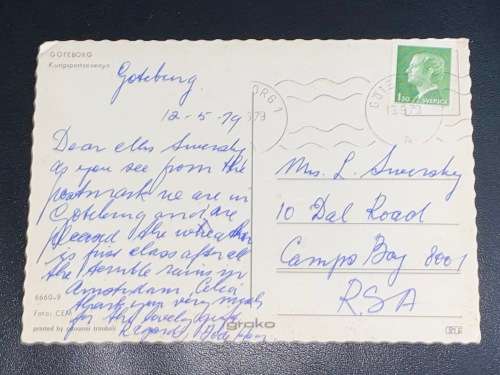 GÖTEBORG
Kungsportsavenyn
Goteburg
12-5-79
Dear Mrs Swersky
as you see from the
postmark we are in
Goteburg and are
pleased the weather
is first class after all
the terrible rains in
Amsterdam, Celia
thank you very much
for the lovely
Regards
6660-9
Foto: CEM
printed by
groko
ORG 1
1.30 SVERIGE
Mrs. L. Swersky
10 Dal Road
Camps Bay 8001
RSA